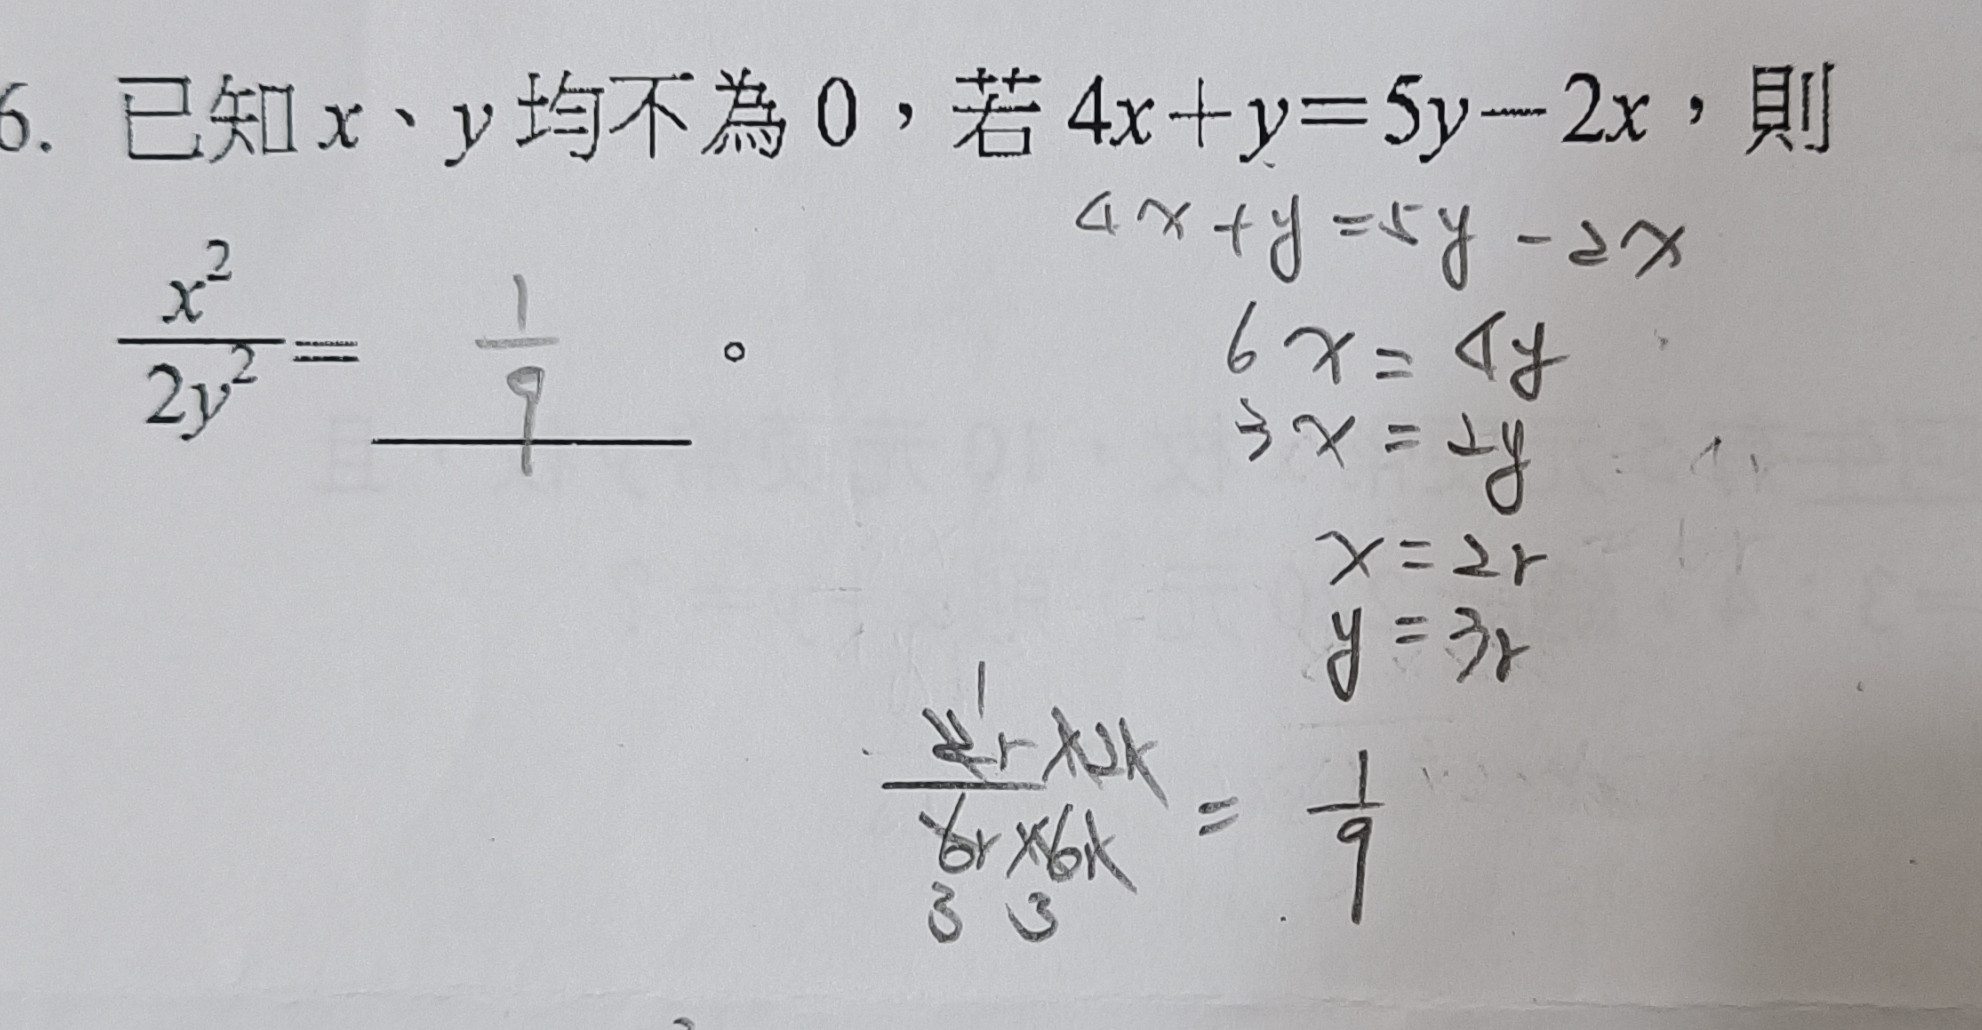 6. 已知 x、y 均不為 0，若 4x+y=5y-2x，則
x²/2y² = 1/9 。
4x+y=5y-2x
6x=4y
3x=2y
x=2r
y=3r
1
2r×2r/6r×6r = 1/9
3 3